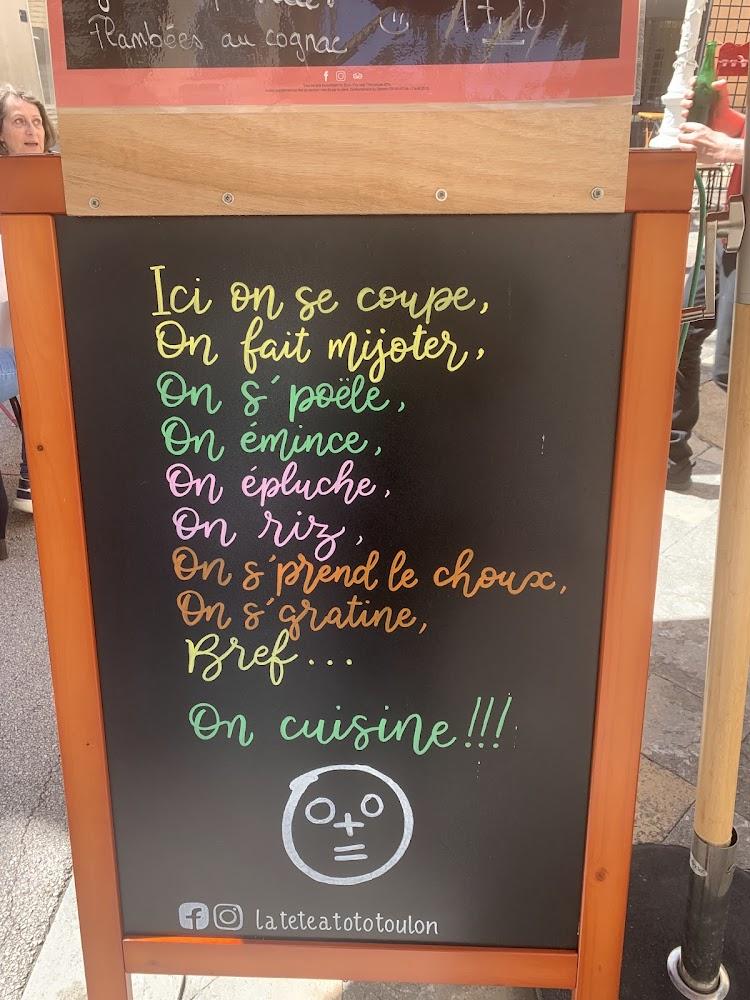 Flambées au cognac 17,10
Ici on se coupe,
On fait mijoter,
On s'poële,
On émince,
On épluche,
On riz,
On s'prend le choux,
On s'gratine,
Bref...
On cuisine!!!
lateteatototoulon